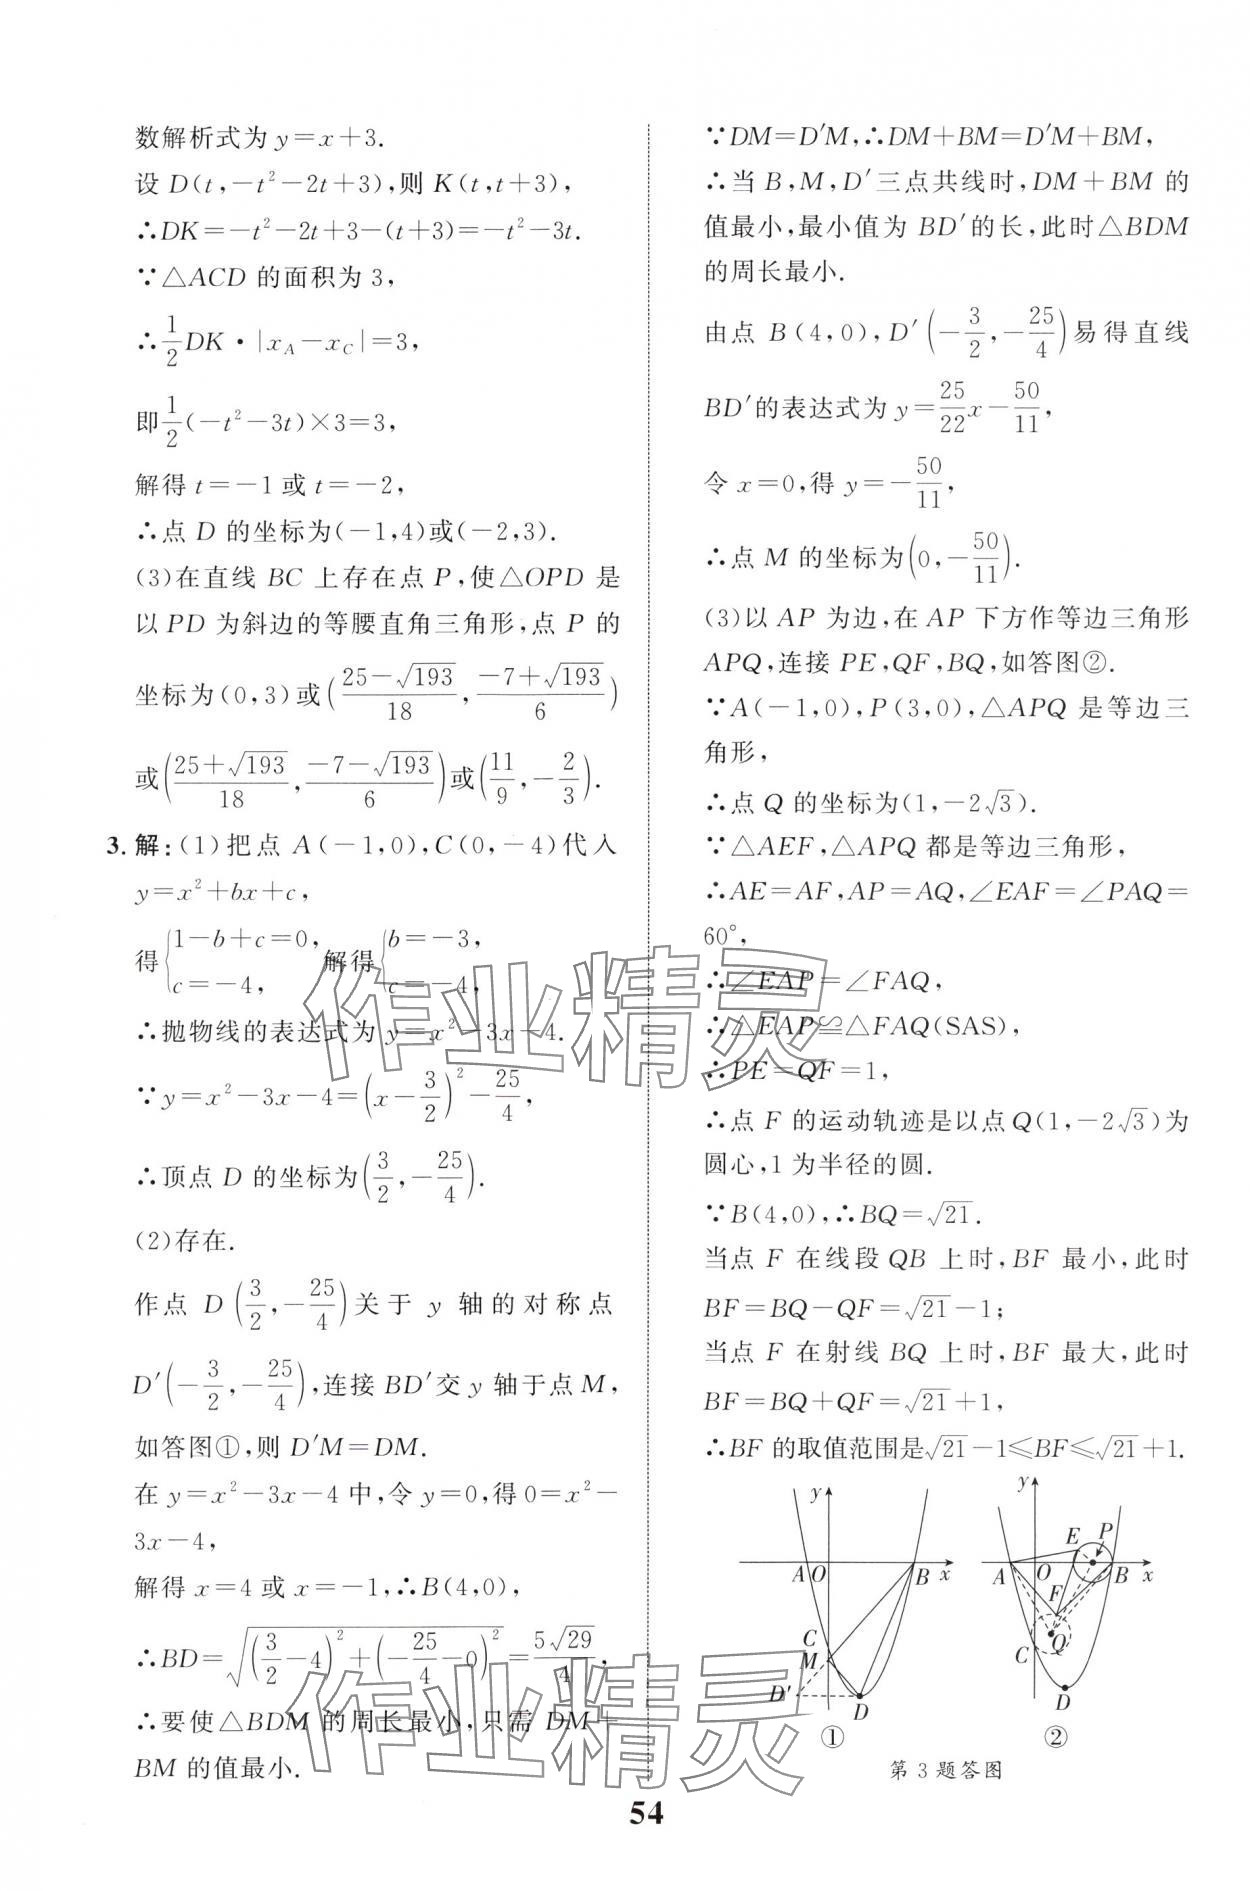 数解析式为 y=x+3.
设 D(t,-t²-2t+3),则 K(t,t+3),
∴DK=-t²-2t+3-(t+3)=-t²-3t.
∵△ACD 的面积为 3,
∴1/2 DK·|x_A-x_C|=3,
即 1/2(-t²-3t)×3=3,
解得 t=-1 或 t=-2,
∴点 D 的坐标为(-1,4)或(-2,3).
(3)在直线 BC 上存在点 P,使△OPD 是
以 PD 为斜边的等腰直角三角形,点 P 的
坐标为(0,3)或((25-√193)/18,(-7+√193)/6)
或((25+√193)/18,(-7-√193)/6)或(11/9,-2/3).
3. 解:(1)把点 A(-1,0),C(0,-4)代入
y=x²+bx+c,
得{1-b+c=0, c=-4, 解得{b=-3, c=-4,
∴抛物线的表达式为 y=x²-3x-4.
∵y=x²-3x-4=(x-3/2)²-25/4,
∴顶点 D 的坐标为(3/2,-25/4).
(2)存在.
作点 D(3/2,-25/4)关于 y 轴的对称点
D′(-3/2,-25/4),连接 BD′交 y 轴于点 M,
如答图①,则 D′M=DM.
在 y=x²-3x-4 中,令 y=0,得 0=x²-
3x-4,
解得 x=4 或 x=-1,∴B(4,0),
∴BD=√((3/2-4)²+(-25/4-0)²)=5√29/4,
∴要使△BDM 的周长最小,只需 DM+
BM 的值最小.
∵DM=D′M,∴DM+BM=D′M+BM,
∴当 B,M,D′三点共线时,DM+BM 的
值最小,最小值为 BD′的长,此时△BDM
的周长最小.
由点 B(4,0),D′(-3/2,-25/4)易得直线
BD′的表达式为 y=25/22 x-50/11,
令 x=0,得 y=-50/11,
∴点 M 的坐标为(0,-50/11).
(3)以 AP 为边,在 AP 下方作等边三角形
APQ,连接 PE,QF,BQ,如答图②.
∵A(-1,0),P(3,0),△APQ 是等边三
角形,
∴点 Q 的坐标为(1,-2√3).
∵△AEF,△APQ 都是等边三角形,
∴AE=AF,AP=AQ,∠EAF=∠PAQ=
60°,
∴∠EAP=∠FAQ,
∴△EAP≌△FAQ(SAS),
∴PE=QF=1,
∴点 F 的运动轨迹是以点 Q(1,-2√3)为
圆心,1 为半径的圆.
∵B(4,0),∴BQ=√21.
当点 F 在线段 QB 上时,BF 最小,此时
BF=BQ-QF=√21-1;
当点 F 在射线 BQ 上时,BF 最大,此时
BF=BQ+QF=√21+1,
∴BF 的取值范围是√21-1≤BF≤√21+1.
y
A O B x
C
M
D′
D
①
y
E P
A O B x
F
C Q
D
②
第 3 题答图
54
作业精灵
作业精灵